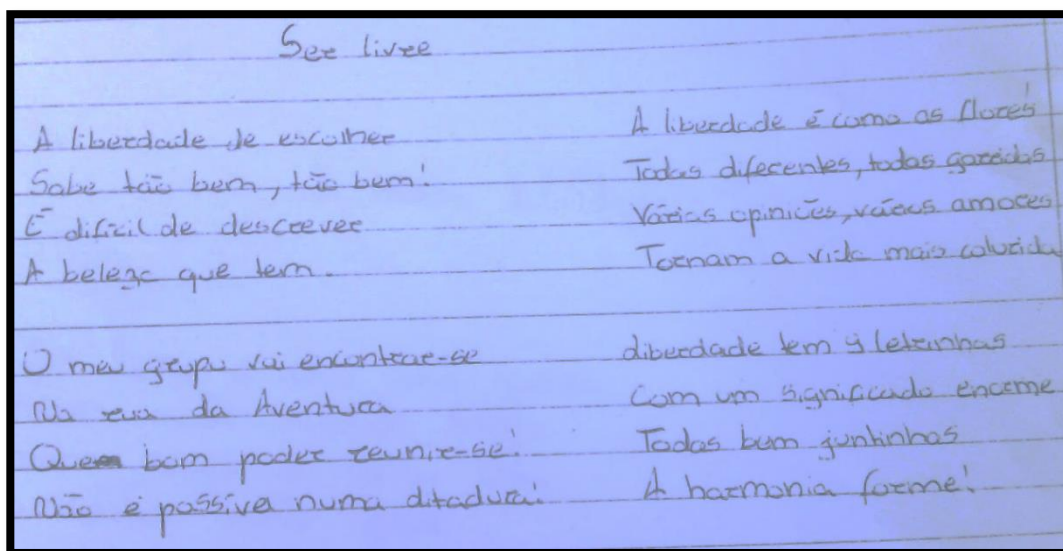 Ser livre
A liberdade de escolher
Sabe tão bem, tão bem!
É difícil de descrever
A beleza que tem.
O meu grupo vai encontrar-se
Na rua da Aventura
Quem bom poder reunir-se!
Não é possível numa ditadura!
A liberdade é como as flores
Todas diferentes, todas garridas
Várias opiniões, vários amores
Tornam a vida mais colorida
Liberdade tem 9 letrinhas
Com um significado enorme
Todas bem juntinhas
A harmonia forme!